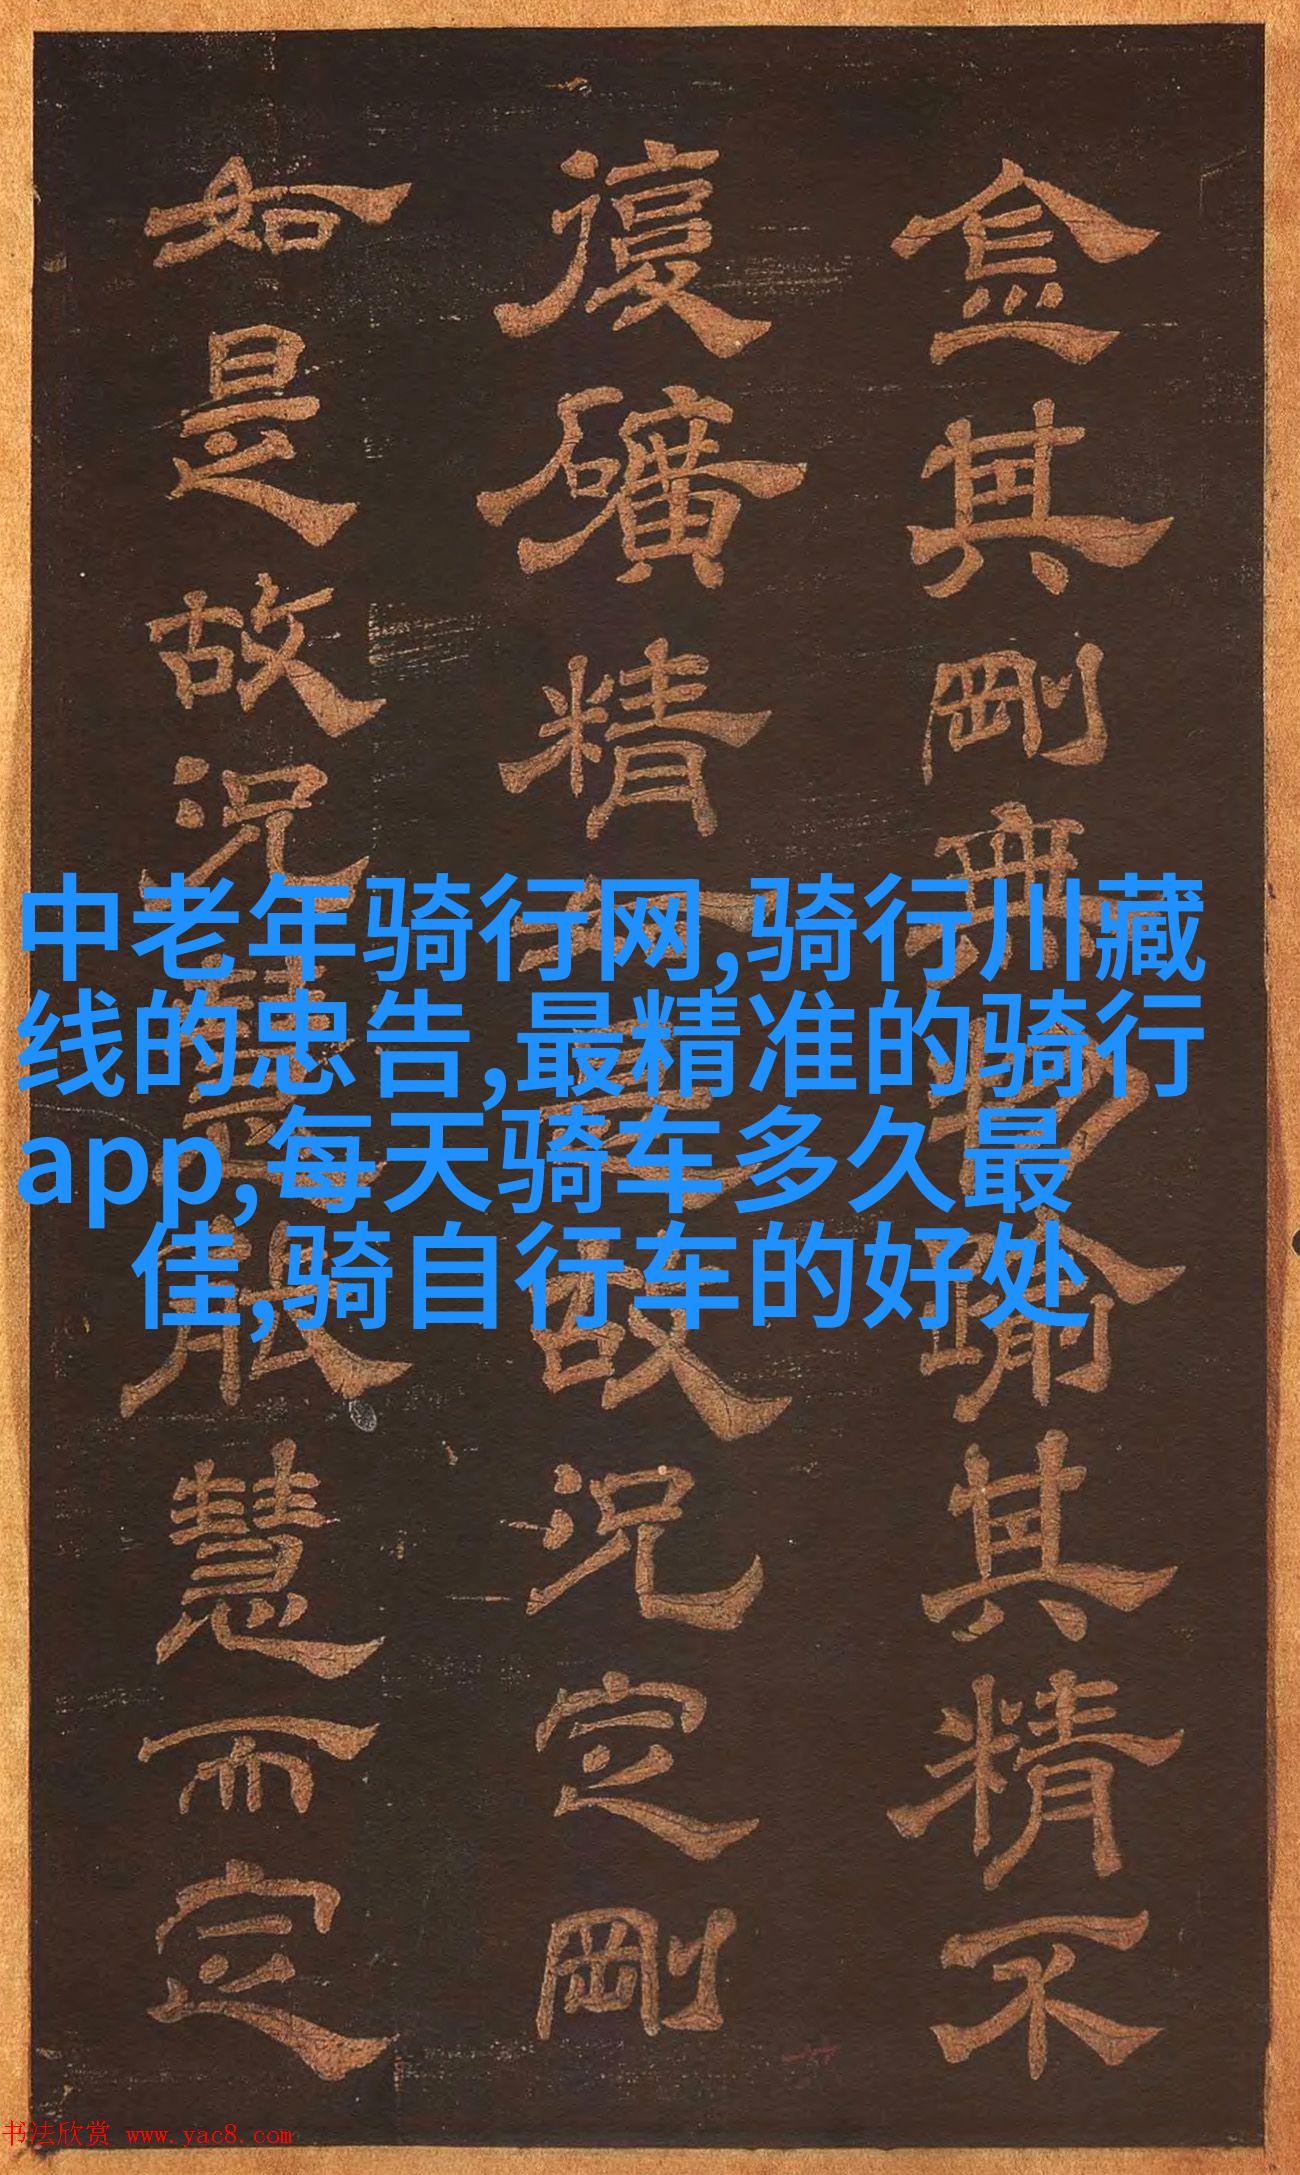 金其剛無踰其精不
復礦精故況定剛
如是故況慧般慧而定
中老年骑行网,骑行川藏
线的忠告,最精准的骑行
app,每天骑车多久最
佳,骑自行车的好处
书法欣赏 www.yac8.com